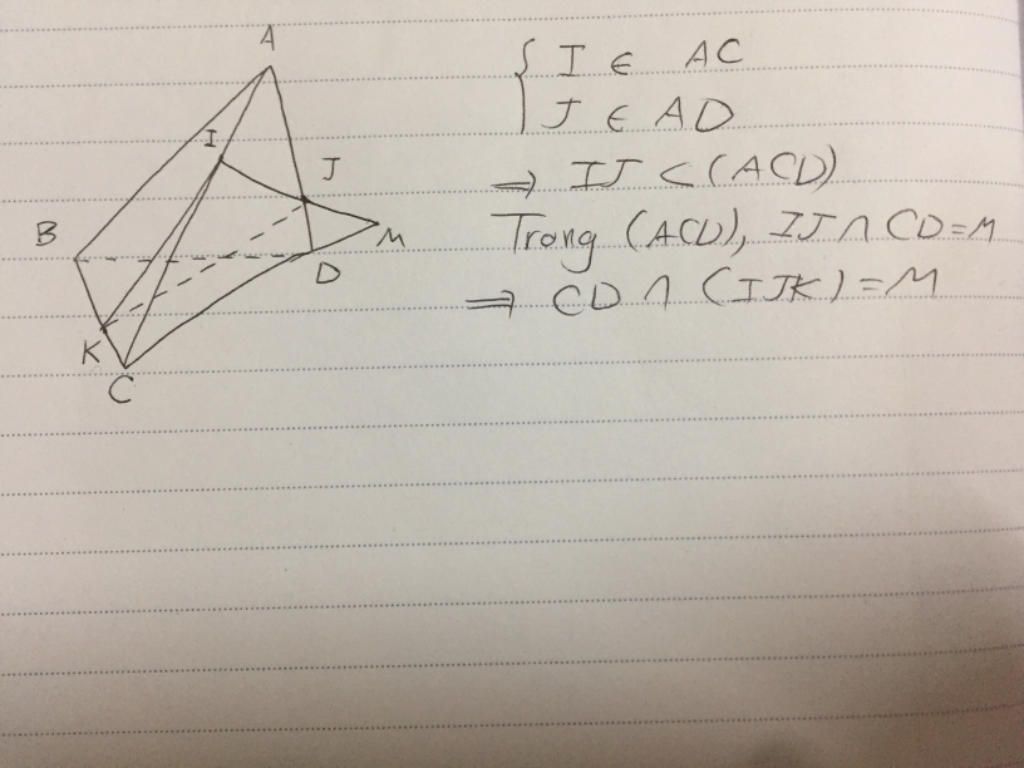 A
I
J
B
M
D
K
C
{ I ∈ AC
J ∈ AD
⇒ IJ ⊂ (ACD)
Trong (ACD), IJ ∩ CD = M
⇒ CD ∩ (IJK) = M